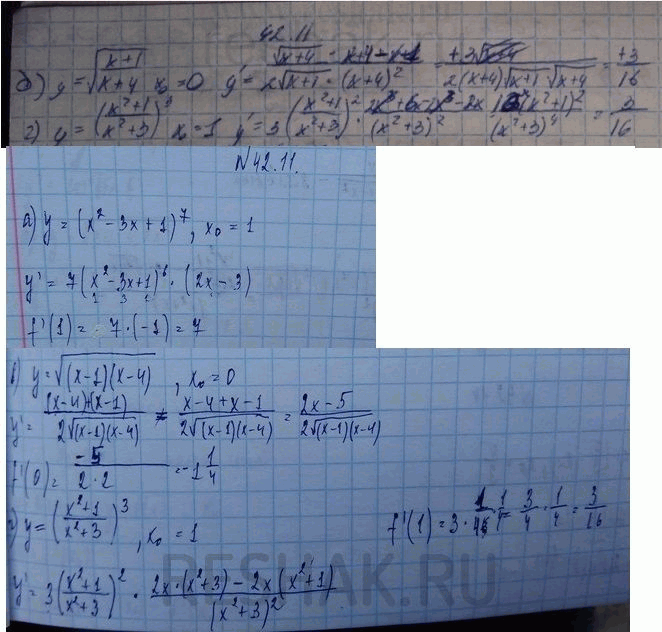 42.11
б) y = √((x+1)/(x+4)) x₀=0 y' = √(x+4) / 2√(x+1) · (x+4-x-1)/(x+4)² = +3 / 2(x+4)√(x+1)√(x+4) = +3/16
г) y = ((x²+1)/(x²+3))³ x₀=1 y' = 3((x²+1)/(x²+3))² · /(x²+3)² (x²+1)²/(x²+3)⁴ = 3/16
N42.11.
а) y = (x² - 3x + 1)⁷, x₀ = 1
y' = 7(x² - 3x + 1)⁶ · (2x - 3)
1 3 1
f'(1) = 7·(-1) = 7
в) y = √((x-1)(x-4)), x₀ = 0
y' = ((x-4)+(x-1)) / 2√((x-1)(x-4)) = (x-4+x-1) / 2√((x-1)(x-4)) = (2x-5) / 2√((x-1)(x-4))
f'(0) = -5 / 2·2 = -1 1/4
г) y = ((x²+1)/(x²+3))³, x₀ = 1
f'(1) = 3 · 1/4 = 3/4 · 1/4 = 3/16
y' = 3((x²+1)/(x²+3))² · (2x·(x²+3) - 2x(x²+1)) / (x²+3)²
RESHAK.RU